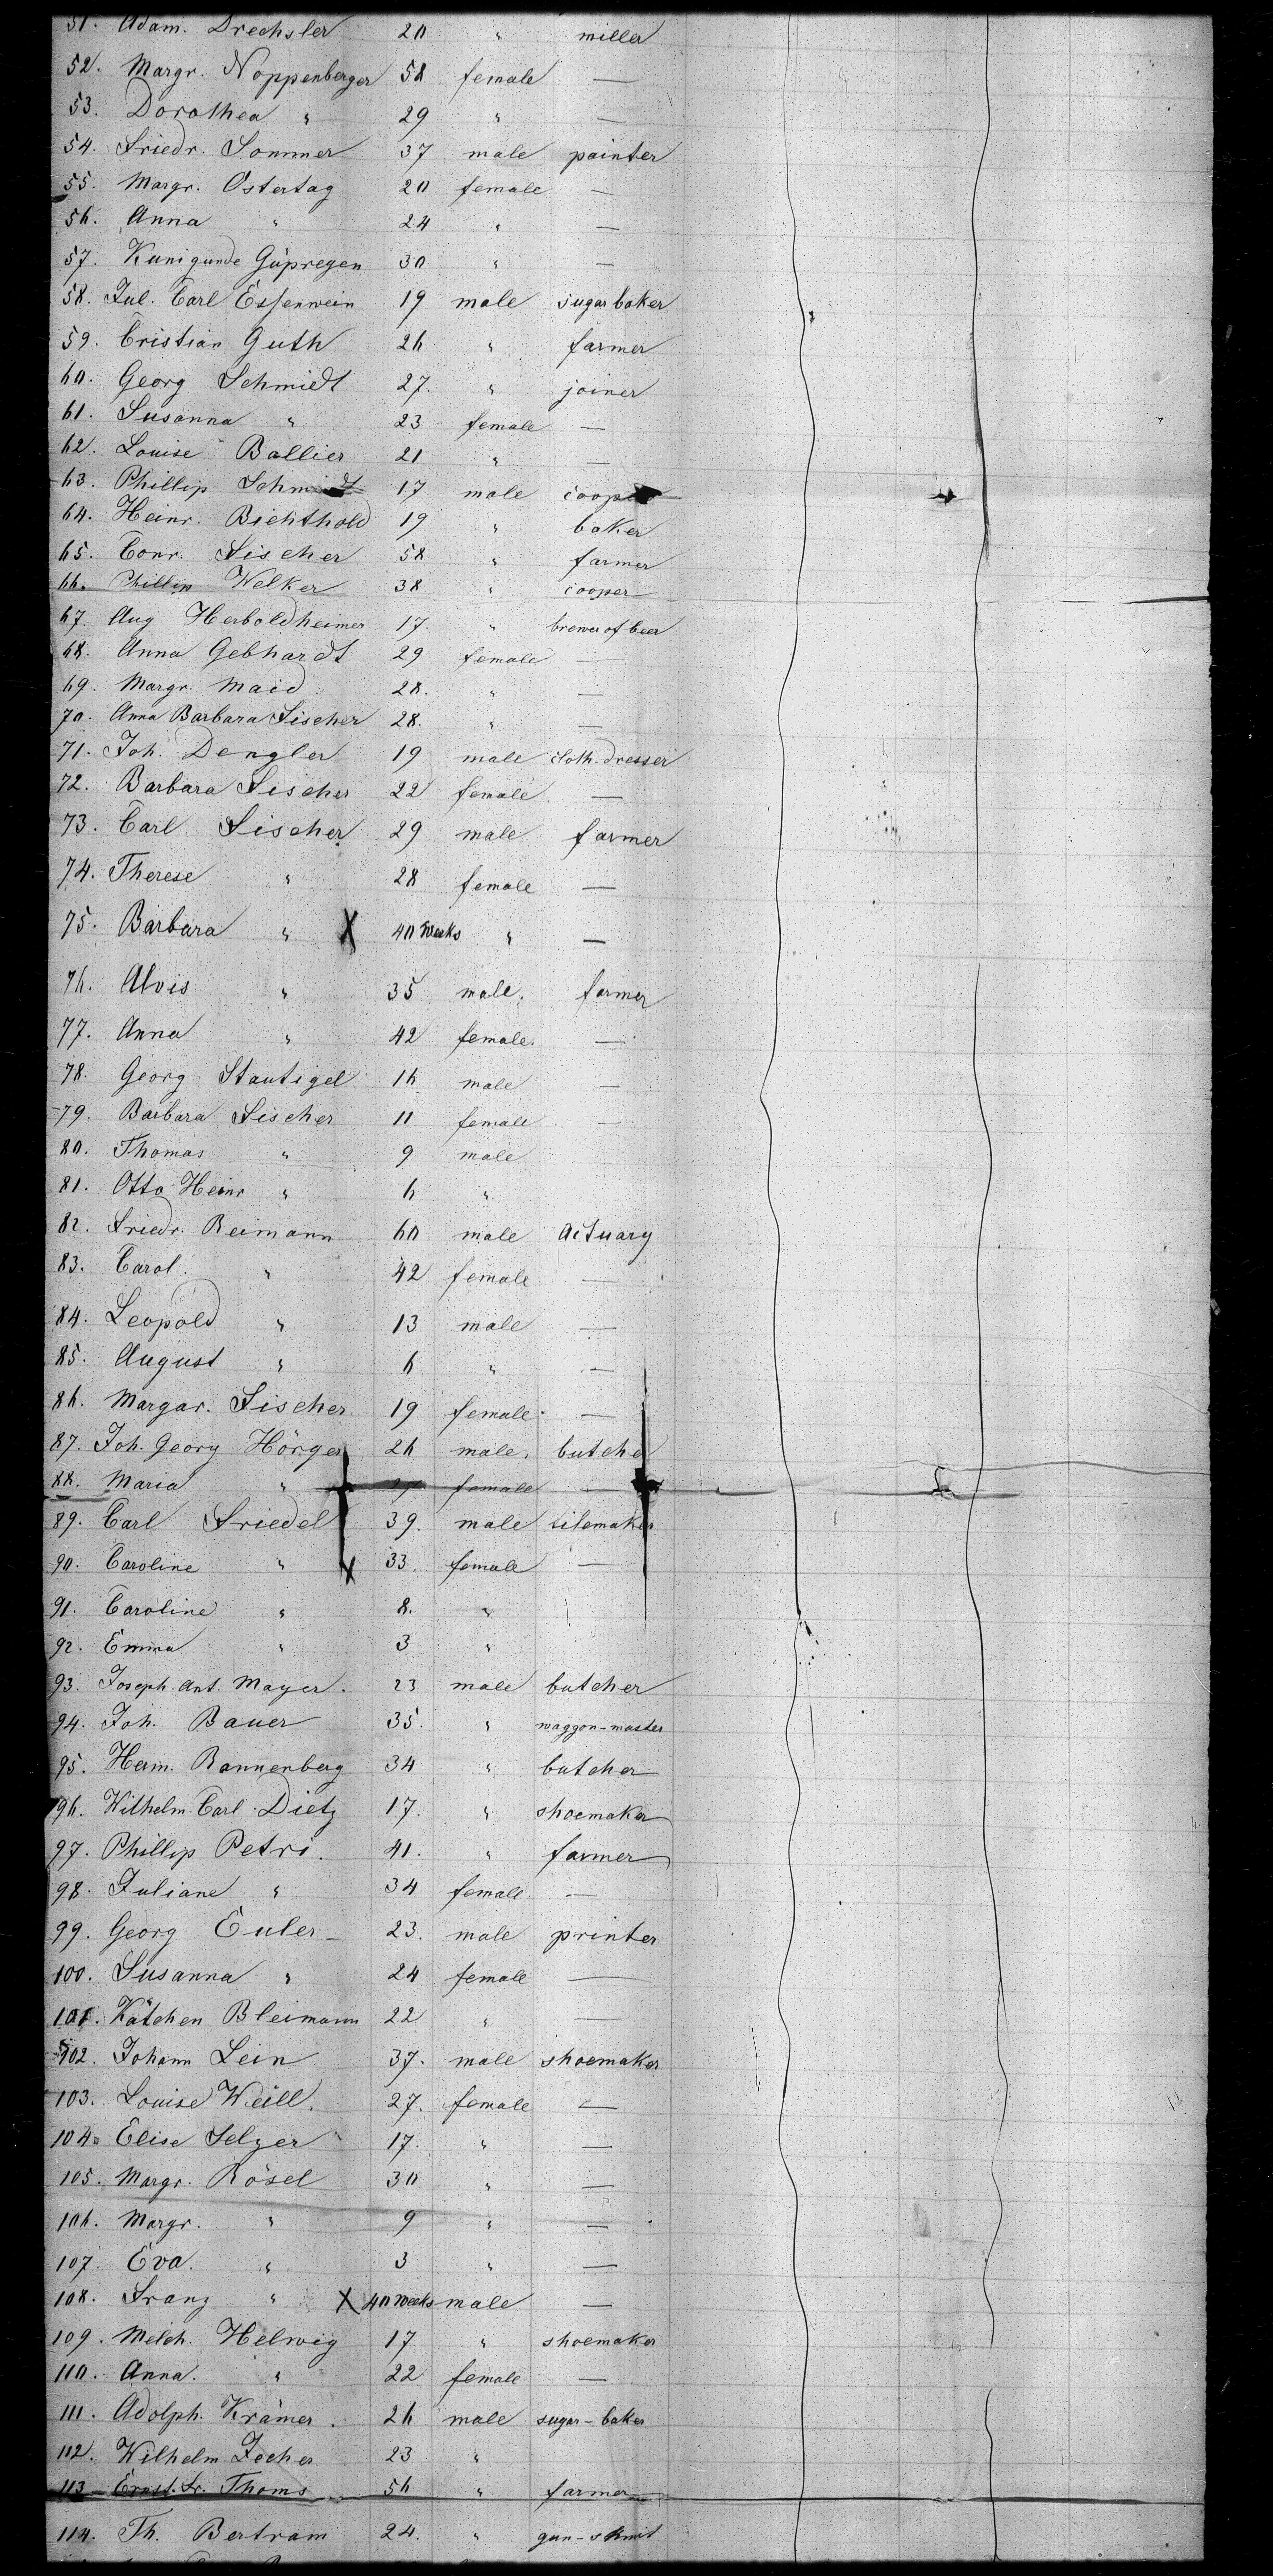 51. Adam. Drechsler 20 " miller
52. Margr. Noppenberger 58 female —
53. Dorothea " 29 " —
54. Friedr. Sommer 37 male painter
55. Margr. Ostertag 20 female —
56. Anna " 24 " —
57. Kunigunde Güpregen 30 " —
58. Jul. Carl Essenwein 19 male sugarbaker
59. Cristian Guth 26 " farmer
60. Georg Schmidt 27. " joiner
61. Susanna " 23 female —
62. Louise Ballier 21 " —
63. Phillip Schmidt 17 male cooper
64. Heinr. Bichthold 19 " baker
65. Conr. Fischer 58 " farmer
66. Phillip Welker 38 " cooper
67. Aug Herboldheimer 17. " brewer of beer
68. Anna Gebhardt 29 female —
69. Margr. Maid 28. " —
70. Anna Barbara Fischer 28. " —
71. Joh. Dengler 19 male cloth-dresser
72. Barbara Fischer 22 female —
73. Carl Fischer 29 male farmer
74. Therese " 28 female —
75. Barbara " X 40 weeks " —
76. Alois " 35 male. farmer
77. Anna " 42 female. —
78. Georg Stautigel 16 male —
79. Barbara Fischer 11 female —
80. Thomas " 9 male
81. Otto Heinr " 6 "
82. Friedr. Reimann 60 male actuary
83. Carol. " 42 female —
84. Leopold " 13 male —
85. August " 6 " —
86. Margar. Fischer 19 female. —
87. Joh. Georg Hörger 26 male. butcher
88. Maria " 27 female —
89. Carl Friedel 39. male tilemaker
90. Caroline " X 33. female —
91. Caroline " 8. "
92. Emma " 3 "
93. Joseph. Ant. Mayer. 23 male butcher
94. Joh. Bauer 35. " waggon-master
95. Herm. Bannenberg 34 " butcher
96. Wilhelm Carl Dietz 17. " shoemaker
97. Phillip Petri. 41. " farmer
98. Juliane " 34 female —
99. Georg Euler 23. male printer
100. Susanna " 24 female —
101. Kätchen Bleimann 22 " —
102. Johann Lein 37. male shoemaker
103. Louise Weill. 27. female —
104. Elise Selzer 17. " —
105. Margr. Rösel 30 " —
106. Margr. " 9 " —
107. Eva. " 3 " —
108. Franz " X 40 weeks male —
109. Melch. Helwig 17 " shoemaker
110. Anna. " 22 female —
111. Adolph. Krämer. 26 male sugar-baker
112. Wilhelm Zecher 23 "
113. Ernst. Fr. Thoms 56 " farmer
114. Th. Bertram 24. " gun-smit